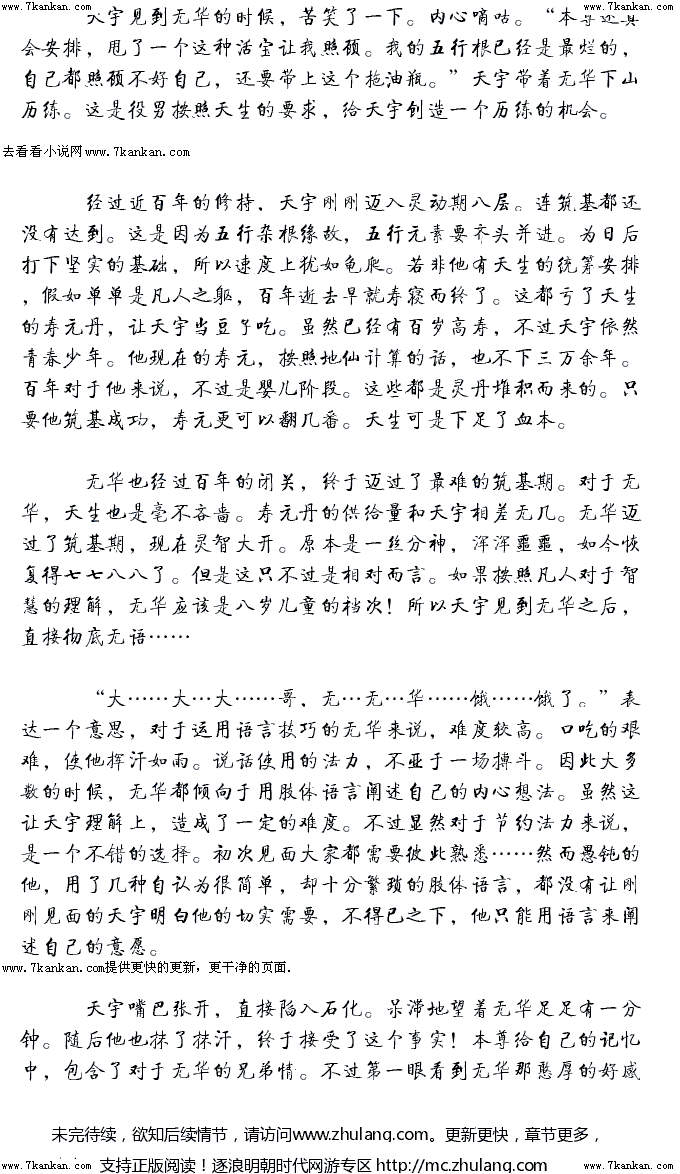 www.7kankan.com
www.7kankan.com
天宇见到无华的时候，苦笑了一下。内心嘀咕。“本尊还真
会安排，甩了一个这种活宝让我照顾。我的五行根已经是最烂的，
自己都照顾不好自己，还要带上这个拖油瓶。”天宇带着无华下山
历练。这是役男按照天生的要求，给天宇创造一个历练的机会。
去看看小说网www.7kankan.com
经过近百年的修持，天宇刚刚迈入灵动期八层。连筑基都还
没有达到。这是因为五行杂根缘故，五行元素要齐头并进。为日后
打下坚实的基础，所以速度上犹如龟爬。若非他有天生的统筹安排
，假如单单是凡人之躯，百年逝去早就寿寝而终了。这都亏了天生
的寿元丹，让天宇当豆子吃。虽然已经有百岁高寿，不过天宇依然
青春少年。他现在的寿元，按照地仙计算的话，也不下三万余年。
百年对于他来说，不过是婴儿阶段。这些都是灵丹堆积而来的。只
要他筑基成功，寿元更可以翻几番。天生可是下足了血本。
无华也经过百年的闭关，终于迈过了最难的筑基期。对于无
华，天生也是毫不吝啬。寿元丹的供给量和天宇相差无几。无华迈
过了筑基期，现在灵智大开。原本是一丝分神，浑浑噩噩，如今恢
复得七七八八了。但是这只不过是相对而言。如果按照凡人对于智
慧的理解，无华应该是八岁儿童的档次！所以天宇见到无华之后，
直接彻底无语……
“大……大…大……哥，无…无…华……饿……饿了。”表
达一个意思，对于运用语言技巧的无华来说，难度较高。口吃的艰
难，使他挥汗如雨。说话使用的法力，不亚于一场搏斗。因此大多
数的时候，无华都倾向于用肢体语言阐述自己的内心想法。虽然这
让天宇理解上，造成了一定的难度。不过显然对于节约法力来说，
是一个不错的选择。初次见面大家都需要彼此熟悉……然而愚钝的
他，用了几种自认为很简单，却十分繁琐的肢体语言，都没有让刚
刚见面的天宇明白他的切实需要，不得已之下，他只能用语言来阐
述自己的意愿。
www.7kankan.com提供更快的更新，更干净的页面.
天宇嘴巴张开，直接陷入石化。呆滞地望着无华足足有一分
钟。随后他也抹了抹汗，终于接受了这个事实！本尊给自己的记忆
中，包含了对于无华的兄弟情。不过第一眼看到无华那憨厚的好感
未完待续，欲知后续情节，请访问www.zhulang.com。更新更快，章节更多，
支持正版阅读！逐浪明朝时代网游专区 http://mc.zhulang.com
www.7kankan.com
www.7kankan.com